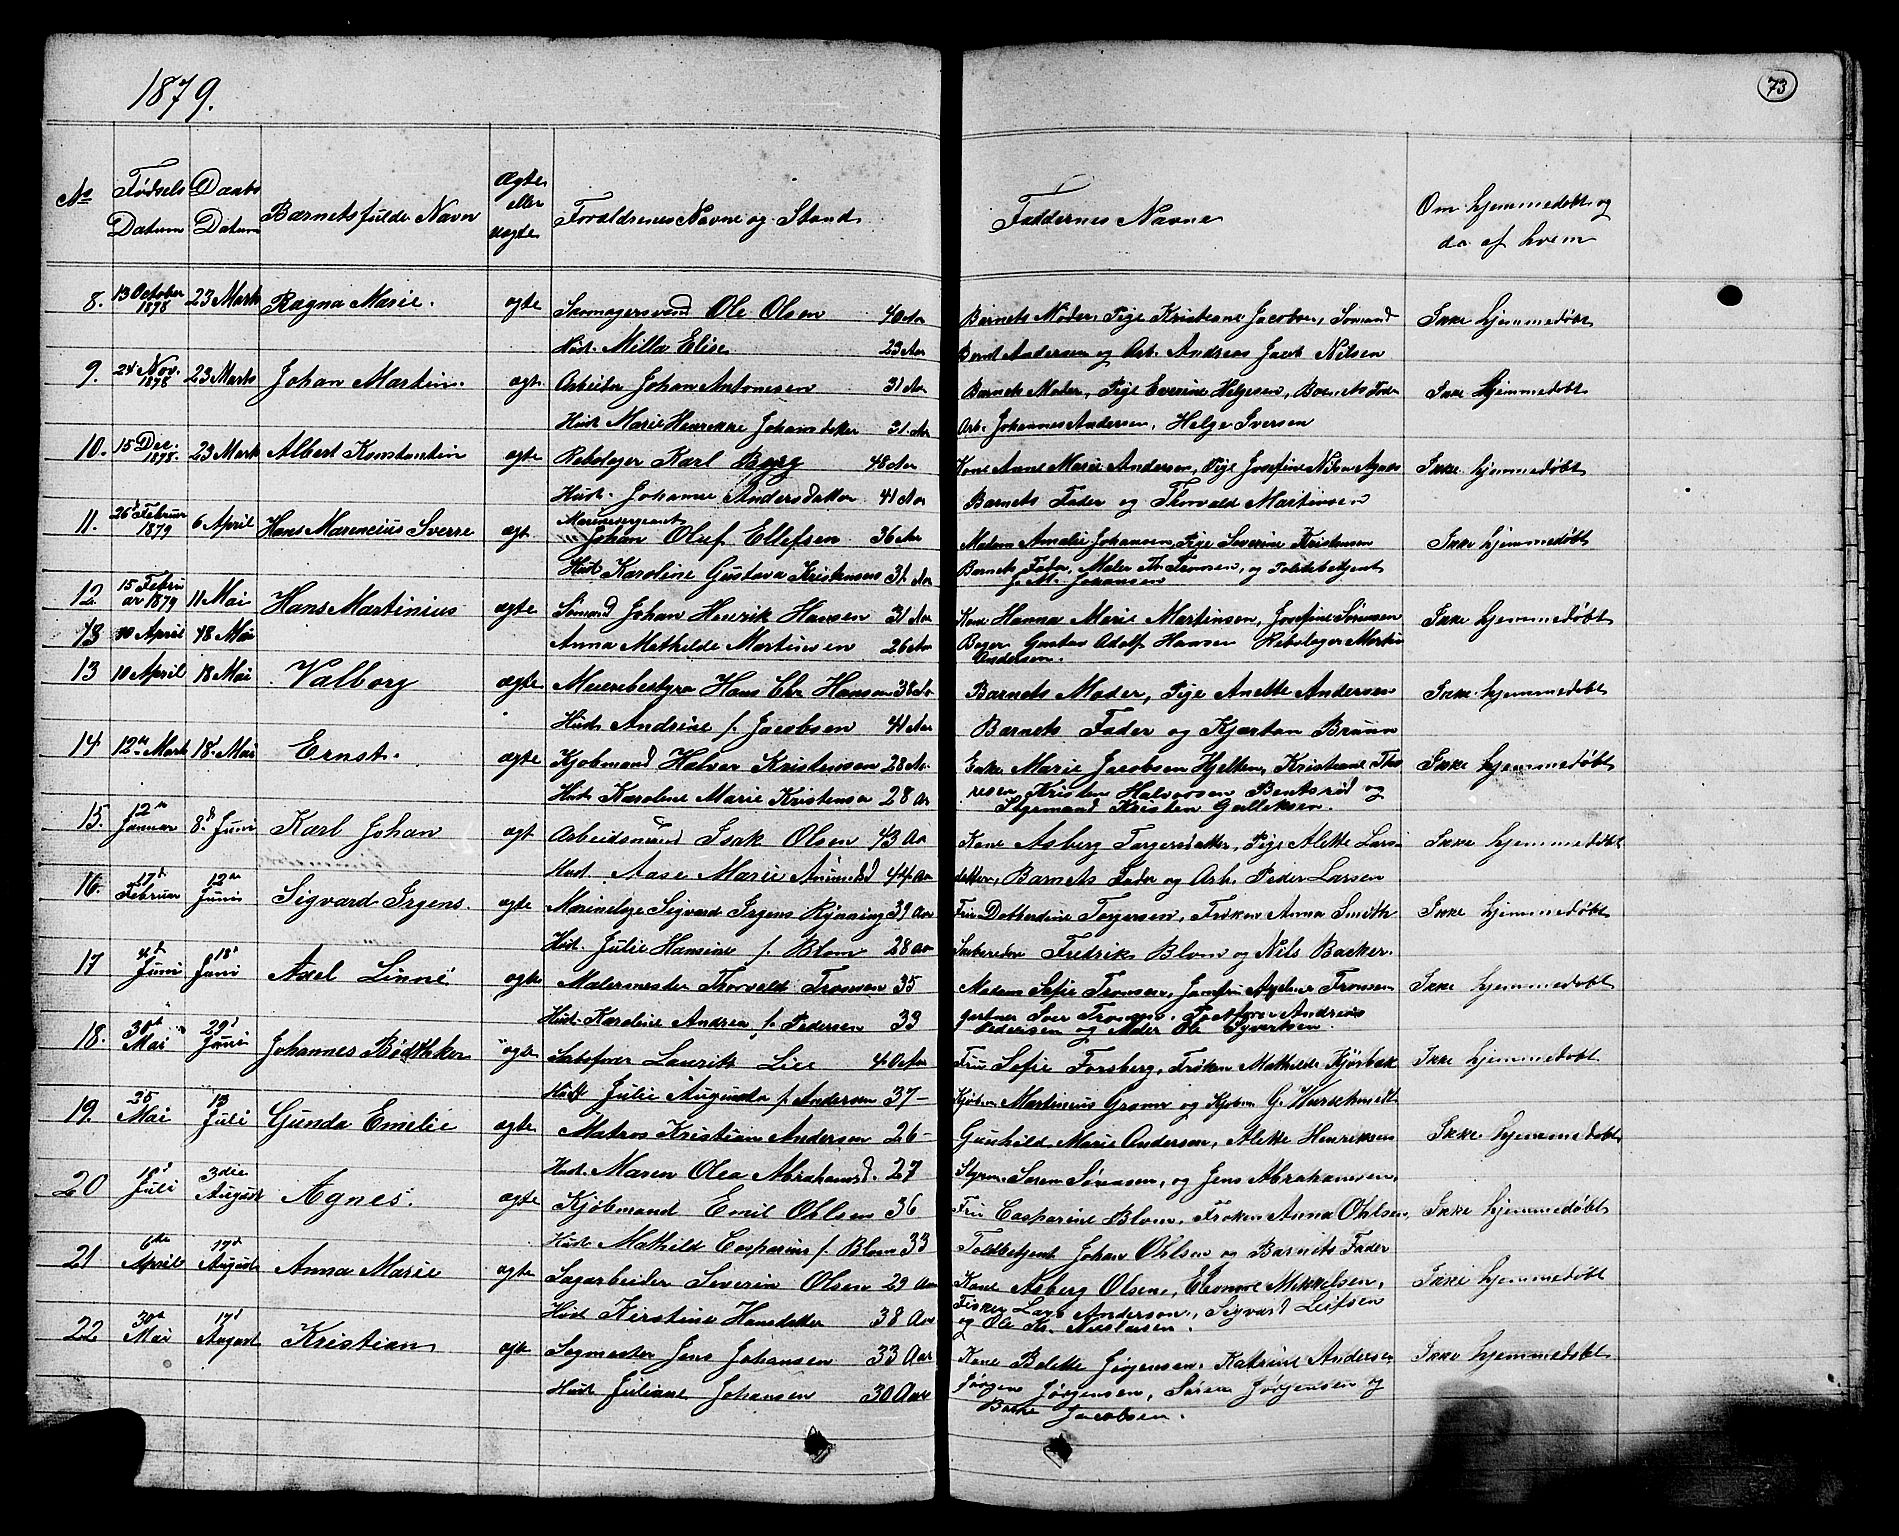 1879.
73
No
Fødsels Datum
Daabs Datum
Barnets fulde Navn
Ægte eller uægte
Forældrenes Navne og Stand
Faddernes Navne
Om hjemmedøbt og da af hvem
8. 13 October 1878 23 Marts Ragna Marie. ægte Skomagersvend Ole Olsen 40 Aar Barnets Moder, Pige Kristiane Jacobsen, Sømand Ikke hjemmedøbt
Hust. Milla Elise 23 Aar Bernt Andersen og Arb. Andreas Jacob Nilsen
9. 24 Nov. 1878 23 Marts Johan Martin. ægt. Arbeider Johan Antonesen 31 Aar Barnets Moder, Pige Everine Helgesen, Barnets Fader Ikke hjemmedøbt
Hust. Marie Henrekke Johansdatter 31 Aar Arb. Johannes Andersen, Helge Iversen
10. 15 Dec. 1878. 23 Mart Albert Konstantin ægte Rebslager Karl Berg 48 Aar Kone Anne Marie Andersen, Pige Josefine Nilsen Ikke hjemmedøbt
Hust. Johanne Andersdatter 41 Aar Barnets Fader og Thorvald Martinsen
11. 26 Februar 1879 6 April Hans Marencius Sverre ægt. Marinesergeant Johan Oluf Ellefsen 36 Aar Madam Amalie Johansen, Pige Severine Kristensen Ikke hjemmedøbt
Hust Karoline Gustava Kristensen 31 Aar Barnets Fader, Maler Th. Tronsen, og Politibetjent
J. M. Johansen
12. 15 Februar 1879 11 Mai Hans Martinius ægte Sømand Johan Henrik Hansen 31 Aar Kone Hanna Marie Martinsen, Josefine Sørensen Ikke hjemmedøbt
13 10 April 18 Mai Anna Mathilde Martinsen 26 Aar Bager Gustav Adolf Hansen Rebslager Martin
Andersen.
13 10 April 18 Mai Valborg ægte Meieribestyrer Hans Chr Hansen 38 Aar Barnets Moder, Pige Anette Andersen Ikke hjemmedøbt
Hust. Andrine f. Jacobsen 41 Aar Barnets Fader og Kjartan Bruun
14 12te Marts 18d Mai Ernst. ægte Kjøbmand Halvor Kristensen 28 Aar Enke Marie Jacobsen Hjelken, Kristiane Tho Ikke hjemmedøbt
Hust. Karoline Marie Kristensen 28 Aar resen Kristen Halvorsen Bentsrød og
Styrmand Kristen Gulliksen.
15. 12te Januar 8d Juni Karl Johan ægt Arbeidsmand Isak Olsen 43 Aar Kone Asberg Torgersdatter, Pige Alette Lars Ikke hjemmedøbt
Hust. Aase Marie 44 Aar datter, Barnets Fader og Arb. Peder Larsen
16. 17d Februar 12te Juni Sigvard Irgens. ægte Marinelæge Sigvard Irgens Rønning 39 Aar Fru Dobberdine Torgersen, Frøken Anna Smith Ikke hjemmedøbt
Hust. Julie Hansine f. Blom 28 Aar Skibsreder Fredrik Blom og Nils Backer.
17 4d Juni 18d Juni Axel Linné ægte Malermester Thorvald Tronsen 35 Madam Sofie Tronsen, Jomfru Tronsen Ikke hjemmedøbt
Hust. Karoline Andrea f. Pedersen 33 gartner Tronsen, Andreas
Pedersen og Maler Ole Syvertsen.
18. 30te Mai 29d Juni Johannes Bødtkker ægte Skibsfører Laurits Lie 40 Aar Fru Sofie Forsberg, Frøken Mathilde Kjørbak Ikke hjemmedøbt
Hust Julie Augusta f. Andersen 37 – Kjøbm. Martinius Gram og Kjøbm. G.
19. 25 Mai 13 Juli Gunda Emelie ægte Matros Kristian Andersen 26 – Gunhild Marie Andersen, Alette Henriksen Ikke hjemmedøbt
Hust. Maren Olea Abrahamsd. 27 Styrm. Søren Sørensen, og Jens Abrahamsen.
20 18d Juli 3die August Agnes. ægte Kjøbmand Emil Ohlsen 36 Fru Casparine Blom, Frøken Anna Ohlsen, Ikke hjemmedøbt
Hust. Mathild Casparine f. Blom 33 Toldbetjent Johan Ohlsen og Barnets Fader
21 6te April 17d August Anna Marie ægte Sagarbeider Severin Olsen 29 Aar Kone Asberg Olsen, Elennore Mikkelsen, Ikke hjemmedøbt
Hust Kirstine Hansdatter 38 Aar Fisker Lars Anderson, Sigvart Leifsen
og Ole Kr. Nielsen.
22 30te Mai 17d August Kristian ægte Sagmester Jens Johansen 33 Aar Kone Belette Jørgensen, Katrine Andersen Ikke hjemmedøbt
Hust Juliane Johansen 30 Aar Jørgen Jørgensen, Søren Jørgensen og
Jacobsen.